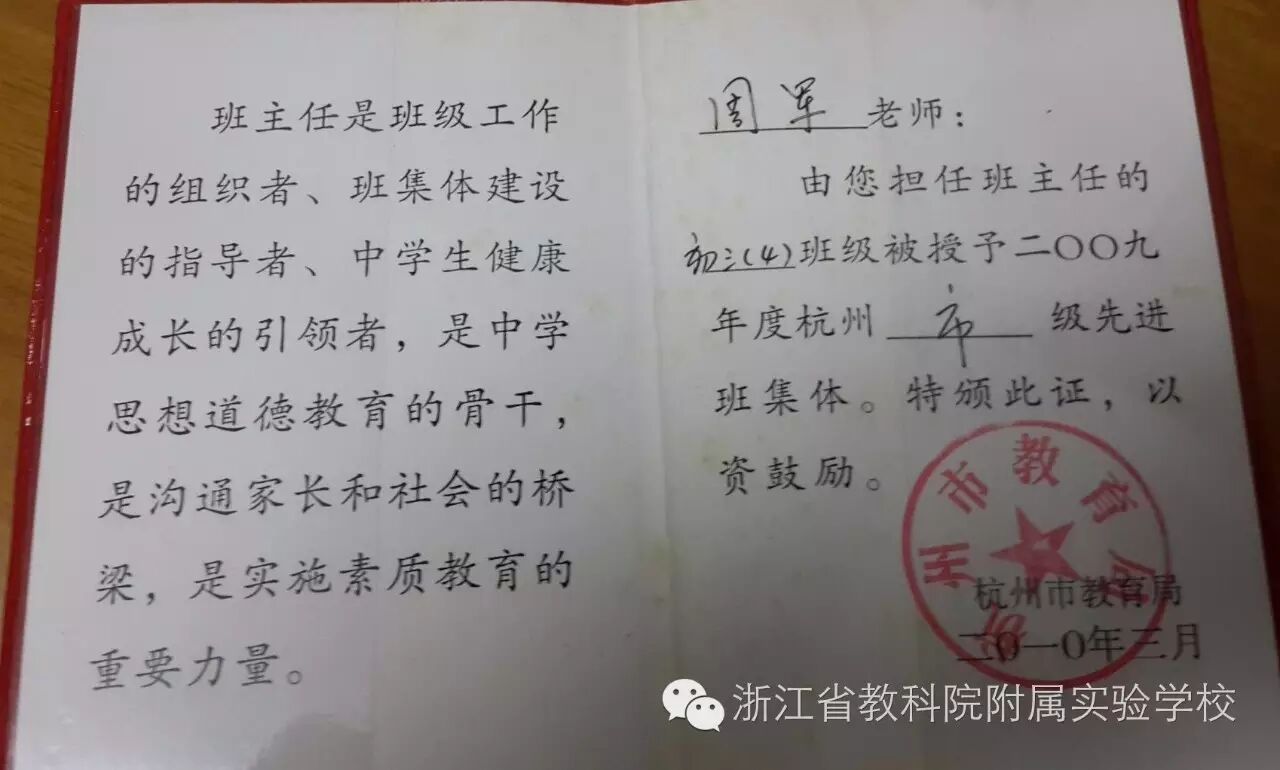 班主任是班级工作
的组织者、班集体建设
的指导者、中学生健康
成长的引领者，是中学
思想道德教育的骨干，
是沟通家长和社会的桥
梁，是实施素质教育的
重要力量。
周军老师：
由您担任班主任的
初三(4)班级被授予二〇〇九
年度杭州 市 级先进
班集体。特颁此证，以
资鼓励。
杭州市教育局
杭州市教育局
二〇一〇年三月
浙江省教科院附属实验学校